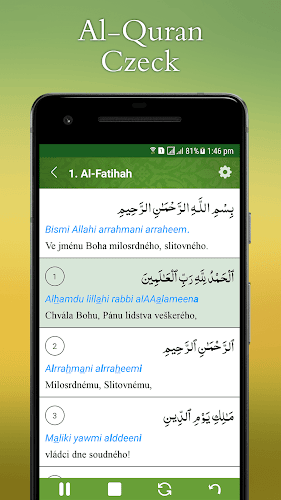 Al-Quran
Czeck
81% 1:46 pm
1. Al-Fatihah
بِسْمِ اللَّهِ الرَّحْمَٰنِ الرَّحِيمِ
Bismi Allahi arrahmani arraheem.
Ve jménu Boha milosrdného, slitovného.
1
ٱلْحَمْدُ لِلَّهِ رَبِّ ٱلْعَٰلَمِينَ
Alhamdu lillahi rabbi alAAalameena
Chvála Bohu, Pánu lidstva veškerého,
2
ٱلرَّحْمَٰنِ ٱلرَّحِيمِ
Alrrahmani alrraheemi
Milosrdnému, Slitovnému,
3
مَٰلِكِ يَوْمِ ٱلدِّينِ
Maliki yawmi alddeeni
vládci dne soudného!